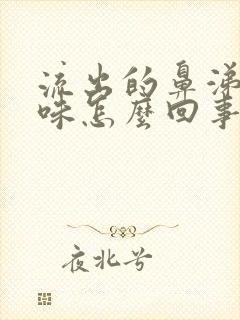 流出的鼻涕
味怎麼回事
夜北兮